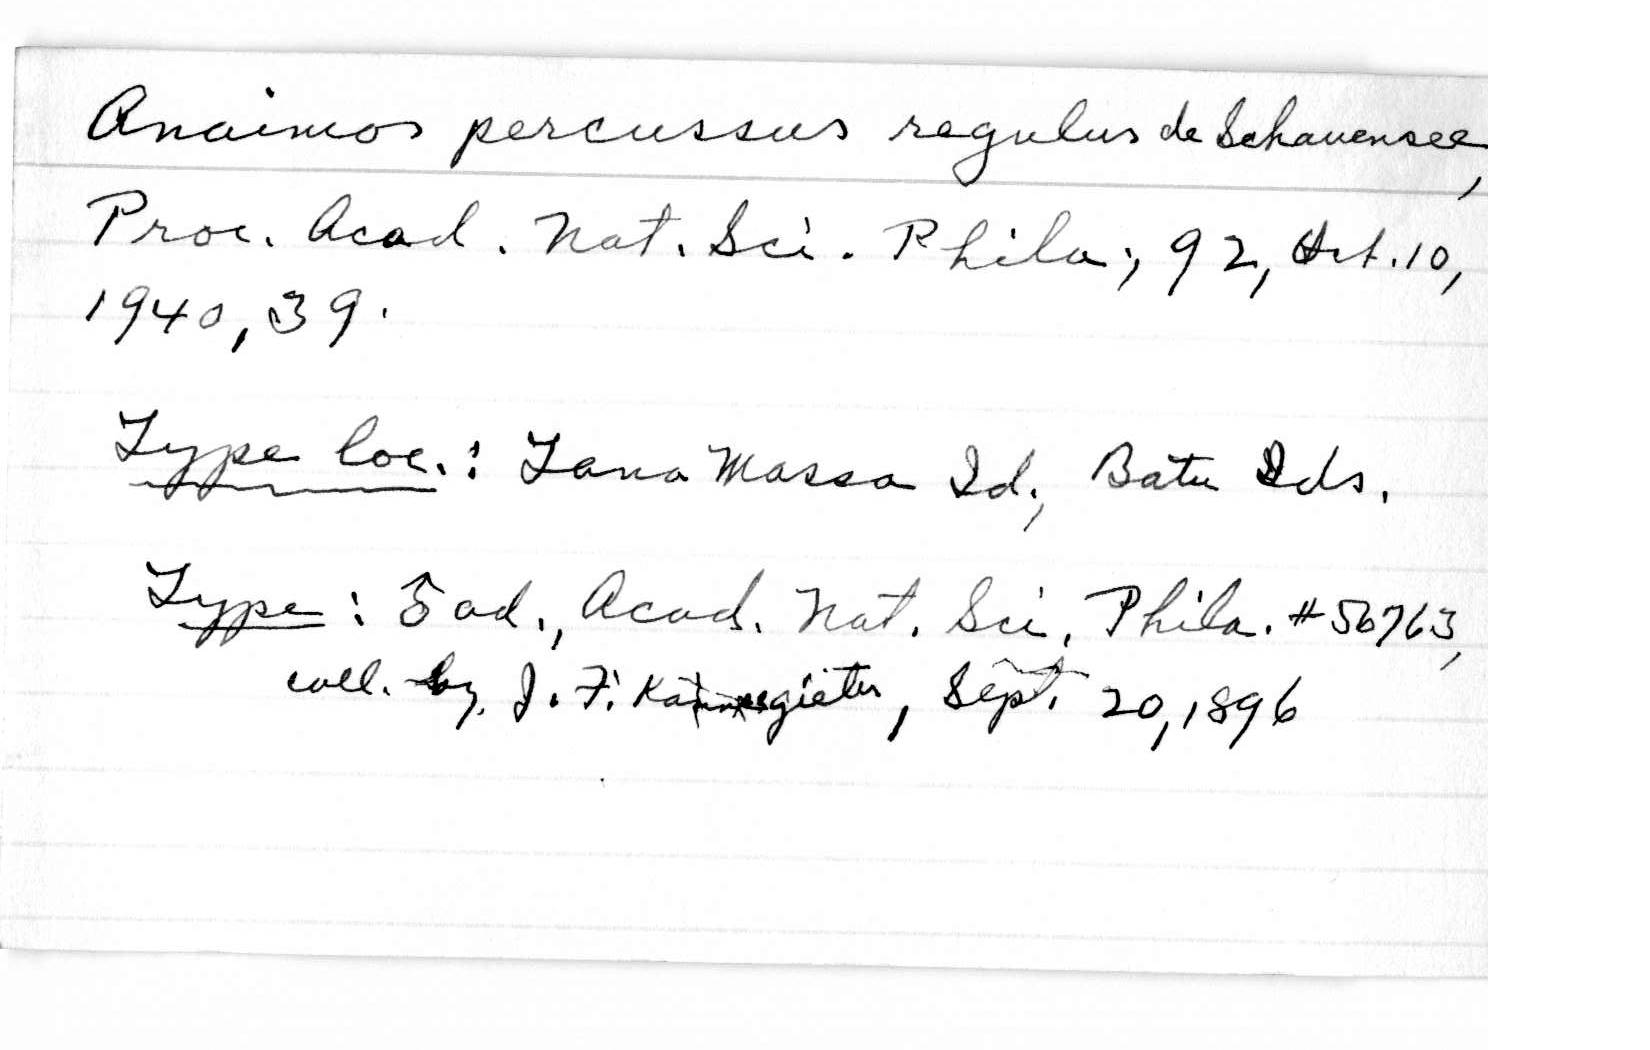 Anaimos percussus regulus de Schauensee,
Proc. Acad. Nat. Sci. Phila., 92, Oct. 10,
1940, 39.
Type loc.: Tana Massa Id., Batu Ids.
Type: ♂ ad., Acad. Nat. Sci. Phila. #56763,
coll. by J. F. Kannegieter, Sept. 20, 1896